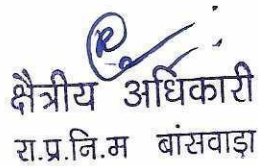 क्षेत्रीय अधिकारी
रा.प्र.नि.म बांसवाड़ा